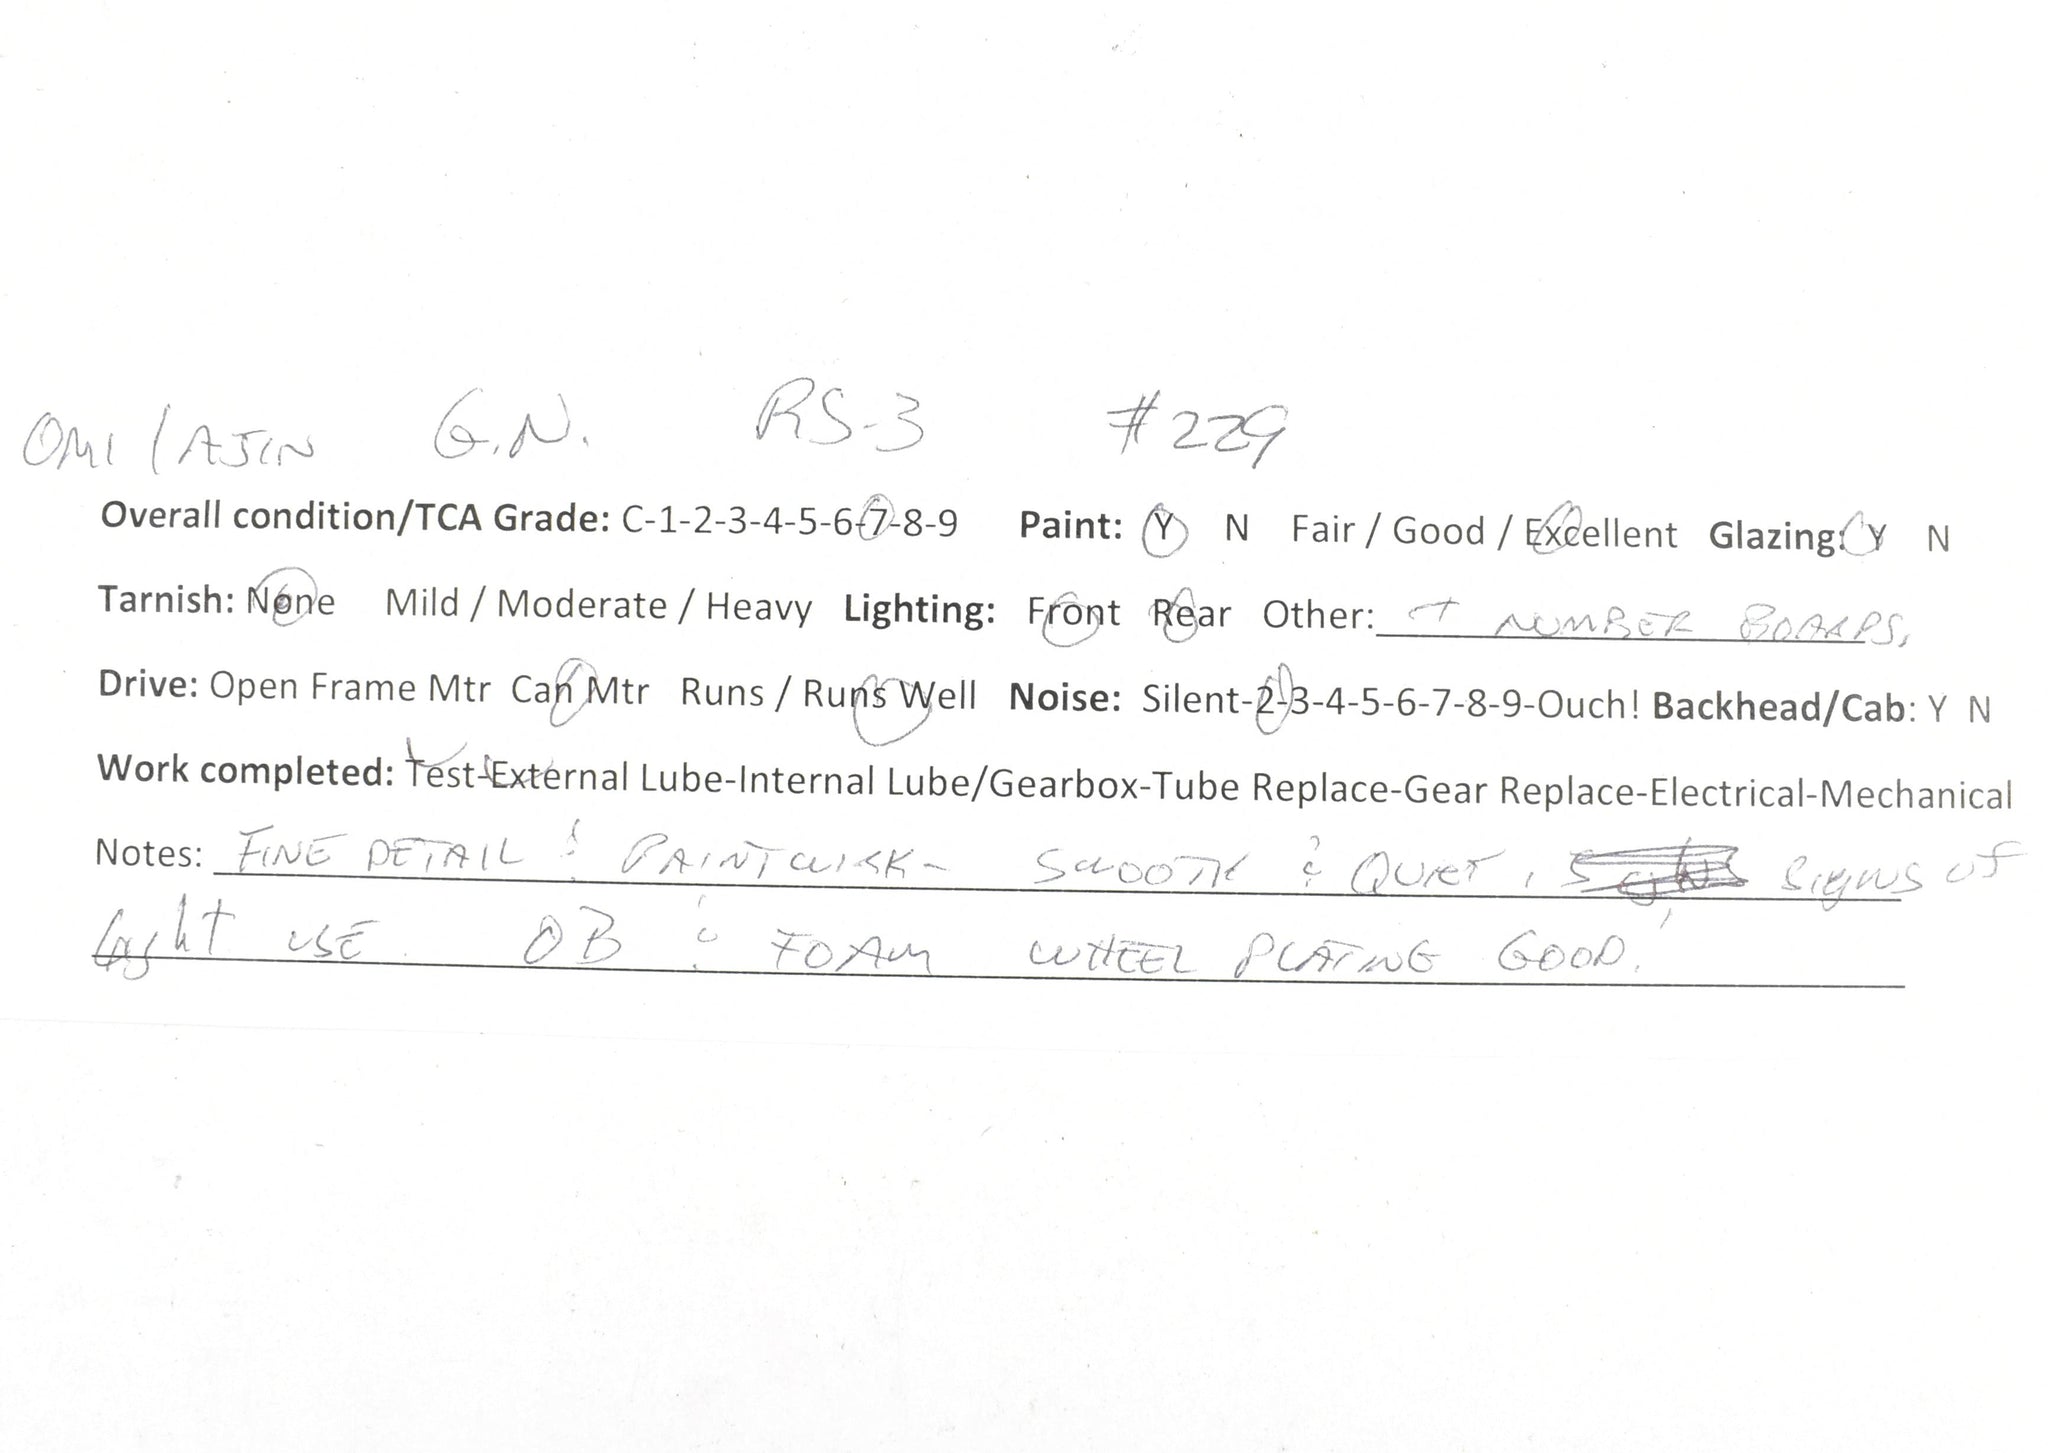 OMI / AJIN G.N. RS-3 #229
Overall condition/TCA Grade: C-1-2-3-4-5-6-7-8-9 Paint: Y N Fair / Good / Excellent Glazing: Y N
Tarnish: None Mild / Moderate / Heavy Lighting: Front Rear Other: + NUMBER BOARDS.
Drive: Open Frame Mtr Can Mtr Runs / Runs Well Noise: Silent-2-3-4-5-6-7-8-9-Ouch! Backhead/Cab: Y N
Work completed: Test-External Lube-Internal Lube/Gearbox-Tube Replace-Gear Replace-Electrical-Mechanical
Notes: FINE DETAIL & PAINTWORK - SMOOTH & QUIET, SIGNS OF
Light USE. OB & FOAM WHEEL PLATING GOOD!